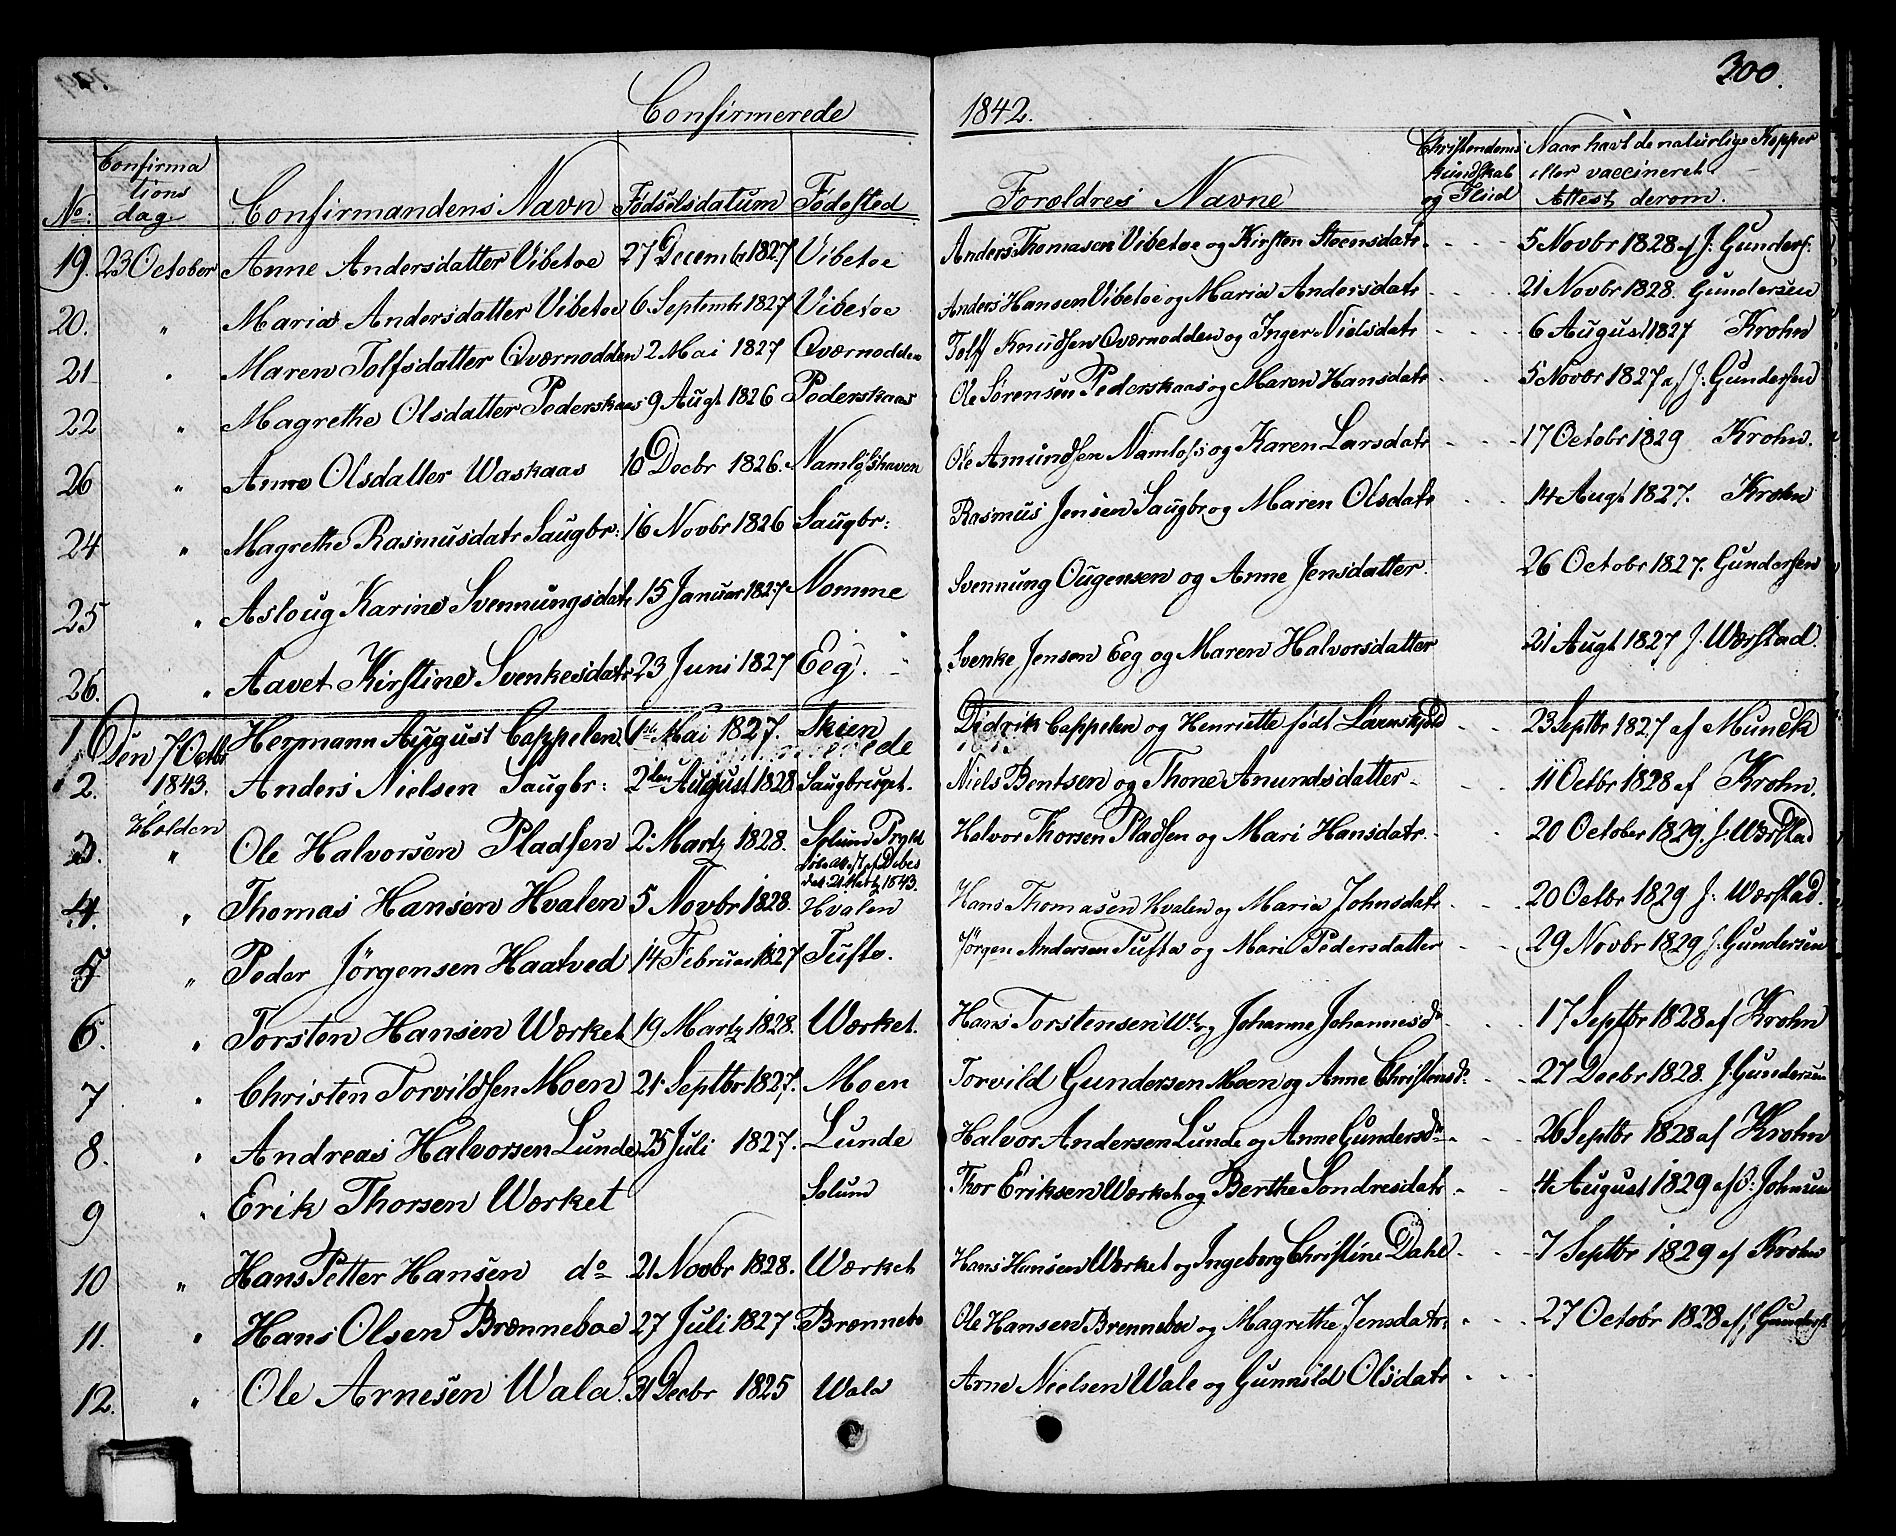 300.
Confirmerede 1842.
No: Confirmations dag. Confirmandens Navn Fødselsdatum Fødested Forældres Navne Christendoms kundskab og Flid Naar havt de naturlige Kopper eller vaccineret Attest derom.
19. 23 October Anne Andersdatter Vibetoe 27 Decembr 1827 Vibetoe Anders Thomasen Vibetoe og Kirsten Steensdatr. - - - 5 Novbr 1828 af J: Gunders:
20. " Maria Andersdatter Vibetoe 6 Septembr 1827 Vibetoe Anders Hansen Vibetoe og Maria Andersdatr - - - 21 Novbr 1828. Gundersen
21 " Maren Tolfsdatter Qværnodden 2 Mai 1827 Qværnodden Tolf Knudsen Qværnodden og Inger Nielsdatr - - - 6 August 1827 Krohn
22 " Magrethe Olsdatter Pederskaas 9 Augt 1826 Pederskaas Ole Sørensen Pederskaas og Maren Hansdatr - - - 5 Novbr 1827 af J: Gundersen
26 " Anne Olsdatter Waskaas 10 Decbr 1826. Namløshaven Ole Amundsen Namloss og Karen Larsdatr - - - 17 Octobr 1829 Krohn.
24 " Magrethe Rasmusdatr Saugbr: 16 Novbr 1826 Saugbr: Rasmus Jensen Saugbr og Maren Olsdatr - - - 14 Augt 1827. Krohn
25 " Asloug Karine Svennungsdatr 15 Januar 1827 Nomme Svennung Ougensen og Anne Jensdatter. 26 Octobr 1827. Gundersen
26. " Aavet Kirstine Svenkesdatr 23 Juni 1827 Eeg. Svenke Jensen Eeg og Maren Halvorsdatter 21 Augt 1827 J. Wærstad.
1 Den 7 Octbr Hermann August Cappelen. 1te Mai 1827. Skien Didrik Cappelen og Henriette født Løvenskjold - - 23 Septbr 1827 af Munck
2. 1843. Anders Nielsen Saugbr: 2den August 1828 Saugbruget. Niels Bentsen og Thone Anundsdatter - - - 11 Octbr 1828 af Krohn.
Holden
3. " Ole Halvorsen Pladsen 2. Martz 1828. Solum Halvor Thorsen Pladsen og Mari Hansdatr. - - 20 October 1829. J. Wærstad
dat. 21 Martz 1843.
4. " Thomas Hansen Hvalen 5 Novbr 1828. Hvalen Hans Thomasen Hvalen og Maria Johnsdatr - - 20 Octbr 1829 J: Wærstad.
5 " Peder Jörgensen Haatved 14 Februar 1827 Tufte. Jørgen Andersen Tufte og Mari Pedersdatter - - 29 Novbr 1829 J. Gundersen
6. " Torsten Hansen Wærket 19 Martz 1828. Wærket. Hans Torstensen Wt. og Johanne Johannesdr - - - 17 Septbr 1828 af Krohn
7 " Christen Torvildsen Moen 21 Septbr 1827. Moen Torvild Gundersen Moen og Anne Christensdr - - - 27 Decbr 1828. J. Gundersen
8. " Andreas Halvorsen Lunde 25 Juli 1827. Lunde Halvor Andersen Lunde og Anne Gundersdr - - 26 Septbr 1828 af Krohn
9 " Erik Thorsen Wærket Solum Thor Eriksen Wærket og Berthe Sondresdatr - - 4 August 1829 af O: Johnsen
10 " Hans Petter Hansen do 21 Novbr 1828. Wærket Hans Hansen Wærket og Ingeborg Christine Dahl. - - 7 Septbr 1829 af Krohn
11. " Hans Olsen Brænneboe 27 Juli 1827. Brænnebo Ole Hansen Brenneboe og Magrethe Jensdatr. - - - 27 Octobr 1828 af J Gunders.
12. " Ole Arnesen Wala. 31 Decbr 1825 Wala Arne Nielsen Wale og Gunnild Olsdatr - - -